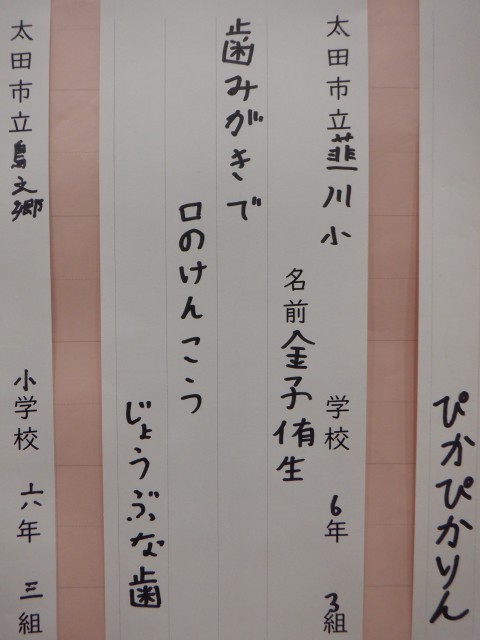 ぴかぴかりん
太田市立韮川小学校 6年 3組
名前 金子侑生
歯みがきで
口のけんこう
じょうぶな歯
太田市立鳥之郷小学校 六年 三組